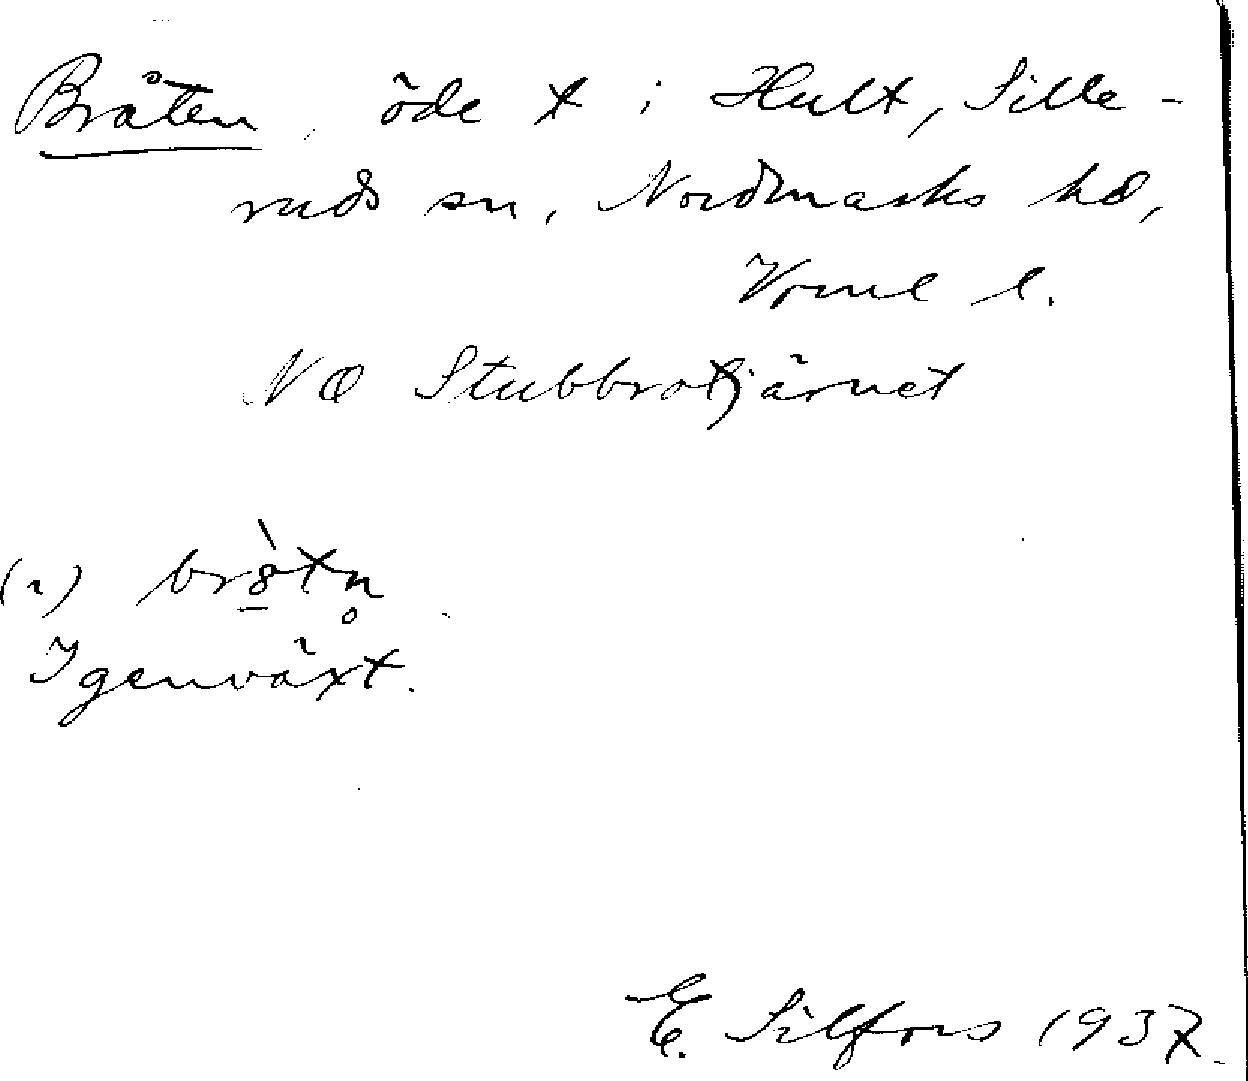 Bråten, öde t i Hult, Sille-
ruds sn, Nordmarks hd,
Vrml l.
NO Stubbrotjärnet
(1) br8̲̀tn̥
Igenväxt.
E. Silfors 1937.